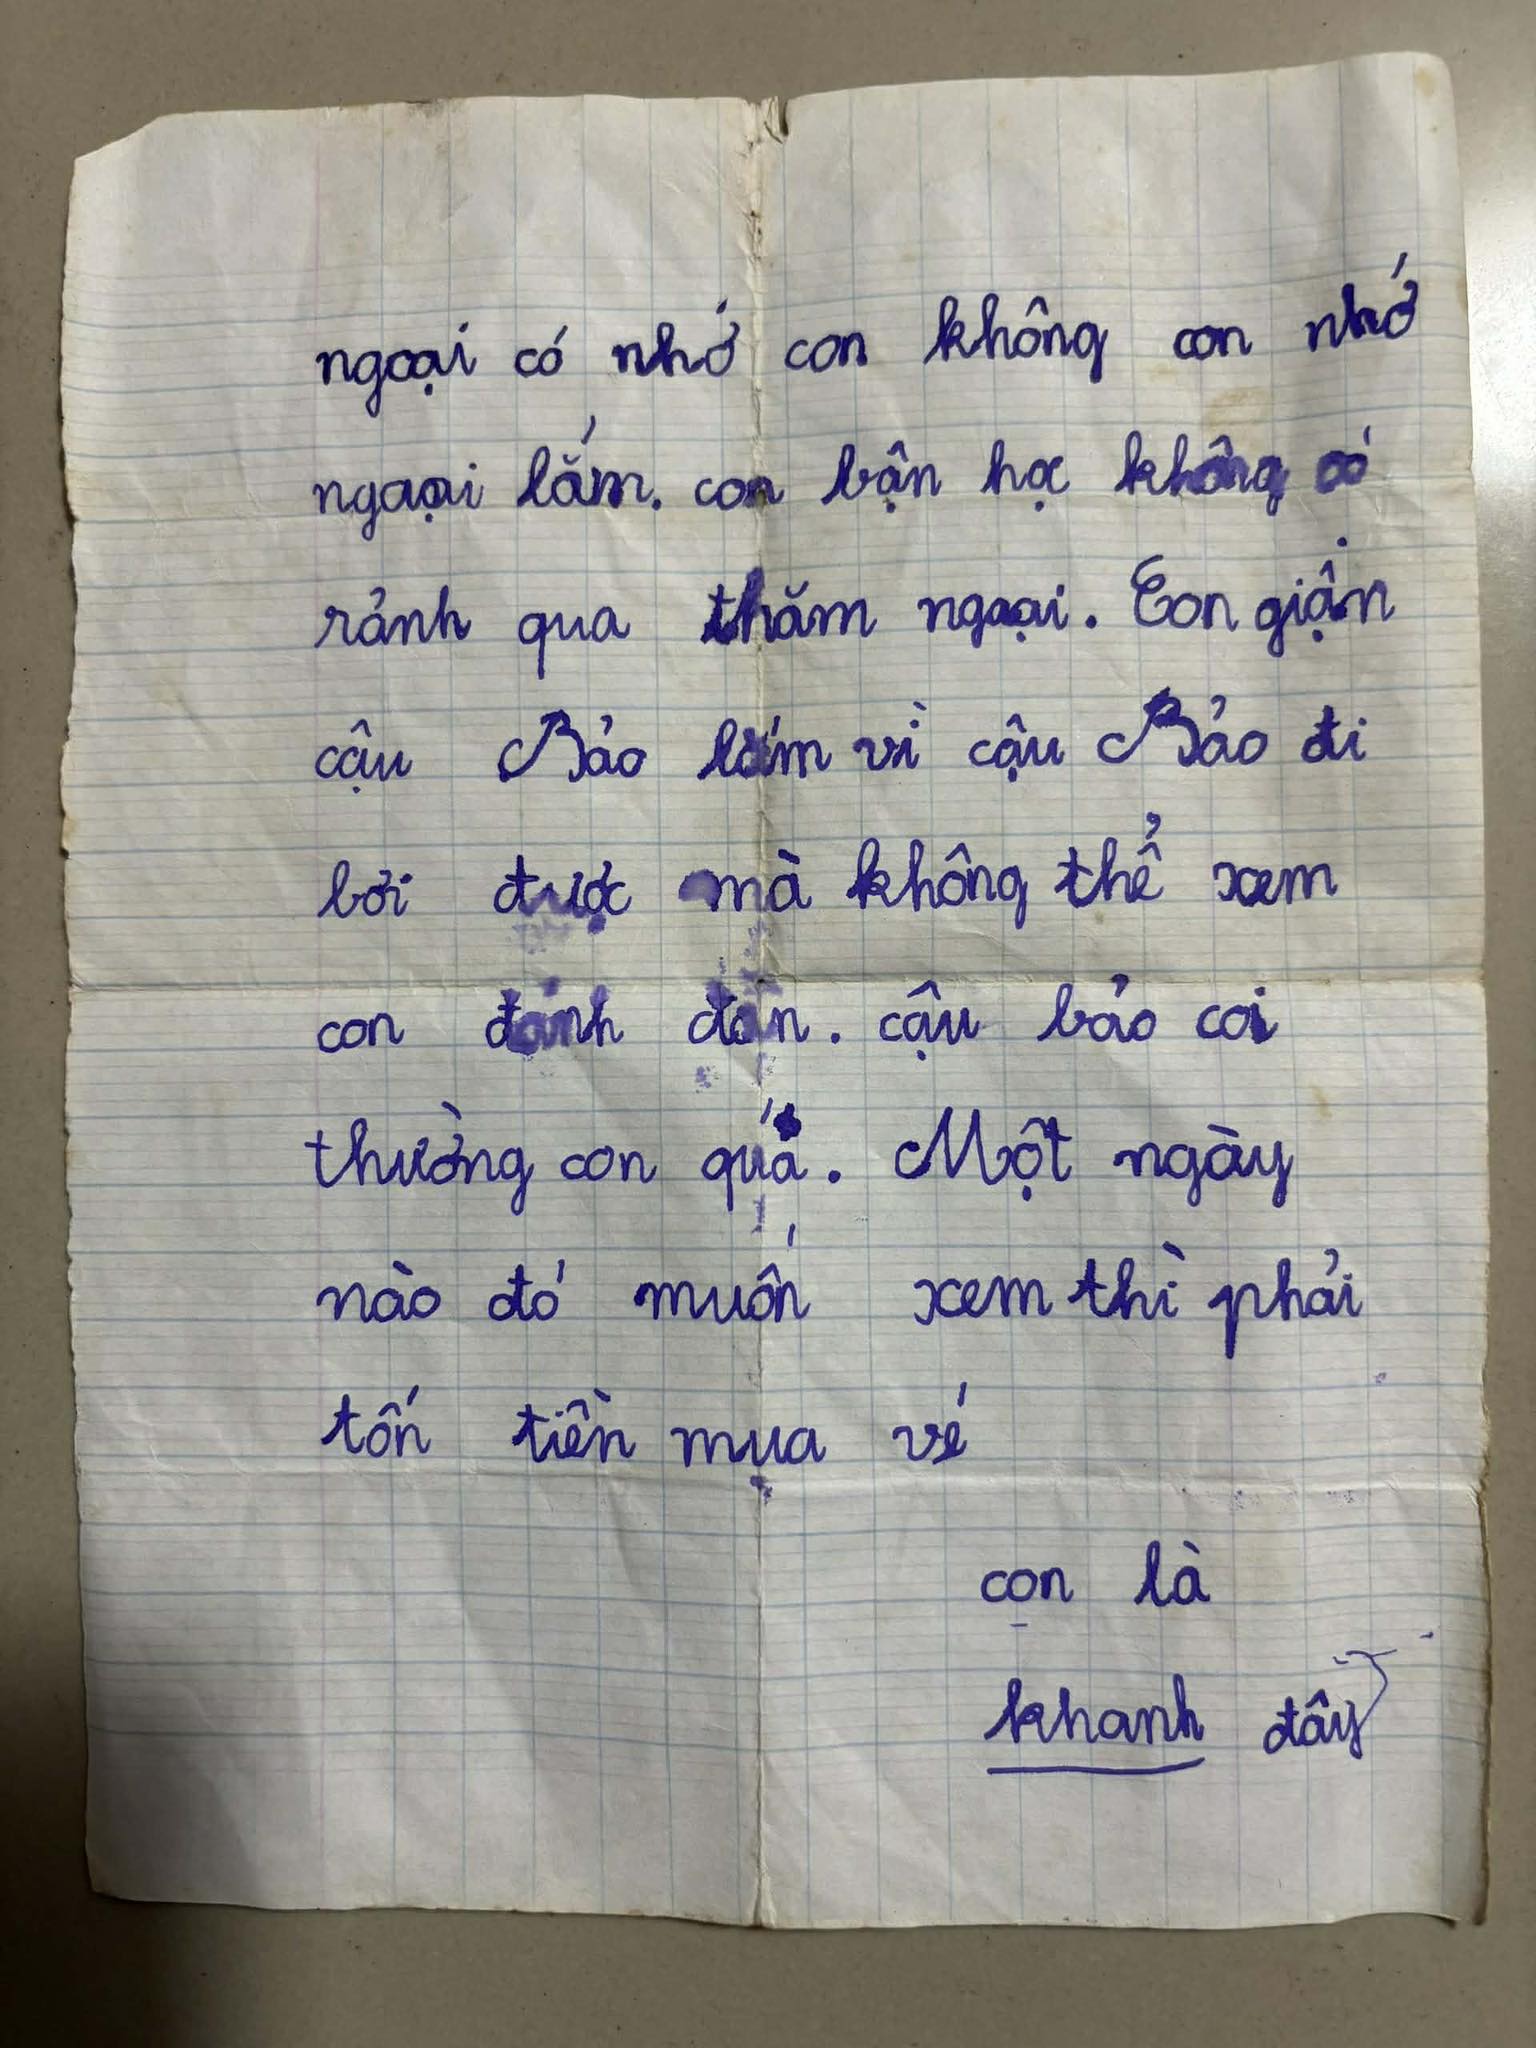 ngoại có nhớ con không con nhớ
ngoại lắm. con bận học không có
rảnh qua thăm ngoại. Con giận
cậu Bảo lắm vì cậu Bảo đi
bơi được mà không thể xem
con đánh đàn. cậu bảo coi
thường con quá. Một ngày
nào đó muốn xem thì phải
tốn tiền mua vé
con là
khanh đây